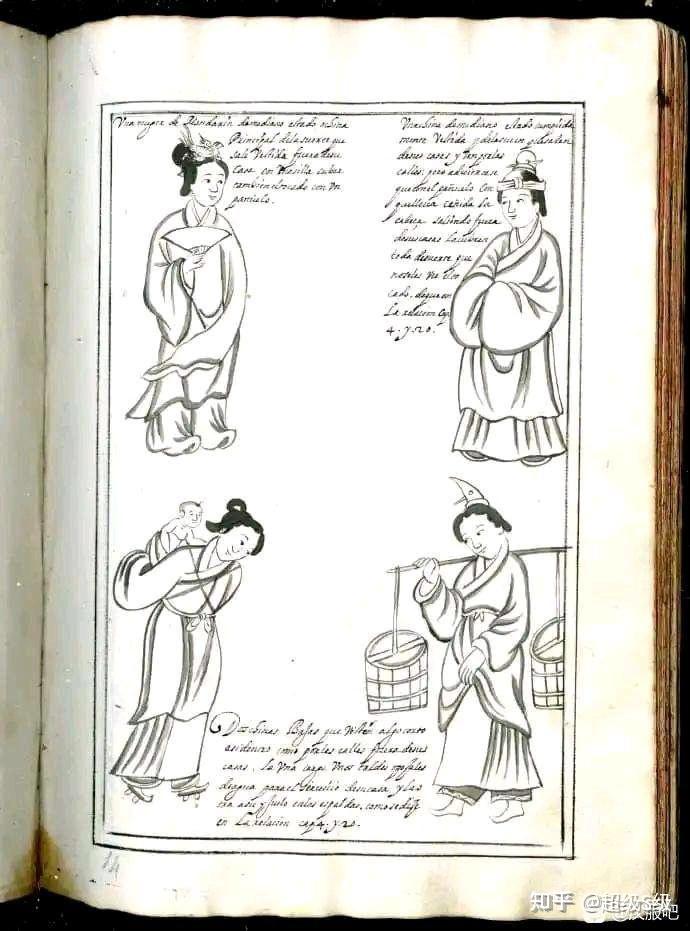 Una muger de Mandarin de mediano estado o china
Principal de la suerte que
sale Vestida fuera de su
Casa con Masilla cubre
tambien el tocado con Un
panuelo.
Una china de mediano estado cumplida
mente Vestida y de la suerte
desus casas y tan por las
calles; pero advirtiese
que con el pañuelo Con
que lleva ceñida la
cabeça saliendo fuera
de sus casas la cubren
toda desuerte que
no se les Vee el to
cado. dequese en
La relacion Cap
4. y. 20.
Dos chinas Bajas que Visten al po corto
asi dentro como por las calles fuera de sus
casas. la Una carga Unos baldes
de agua para el servicio de su casa y la
otra a su hijuelo en las espaldas, como se dise
en La relacion cap 4. y. 20.
14
知乎 @超级S级
汉服吧